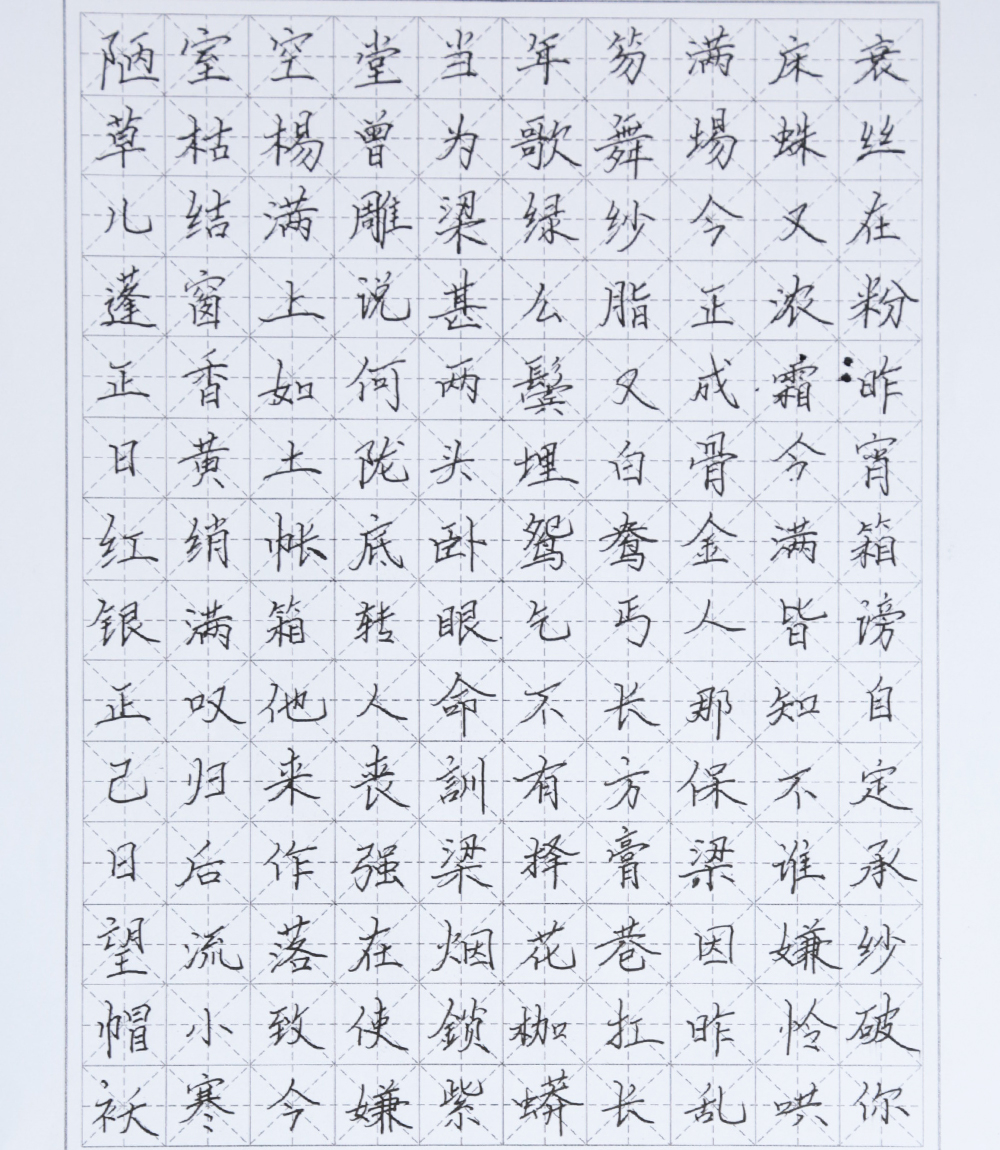 陋室空堂当年笏满床衰
草枯楊曾为歌舞場蛛丝
儿结满雕梁绿纱今又在
蓬窗上说甚么脂正浓粉
正香如何两鬓又成霜昨
日黄土陇头埋白骨今宵
红绡帐底卧鸳鸯金满箱
银满箱转眼乞丐人皆谤
正叹他人命不长那知自
己归来丧訓有方保不定
日后作强梁择膏梁谁承
望流落在烟花巷因嫌纱
帽小致使鎖枷扛昨怜破
袄寒今嫌紫蟒长乱哄你